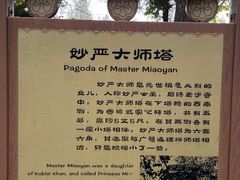 妙严大师塔
Pagoda of Master Miaoyan
妙严大师是元世祖忽必烈的
女儿，人称妙严公主，后终老于寺
中。妙严大师塔在下塔院的西南
侧，为密檐式实心砖塔，共有五
层，高约5丈5尺。在其两侧各有
一座小塔相伴。妙严大师塔为六面
六角，其造型与广慧通理禅师塔相
仿，只是规模小了一些。
Master Miaoyan was a daughter
of Kublai Khan, and called Princess Mi-